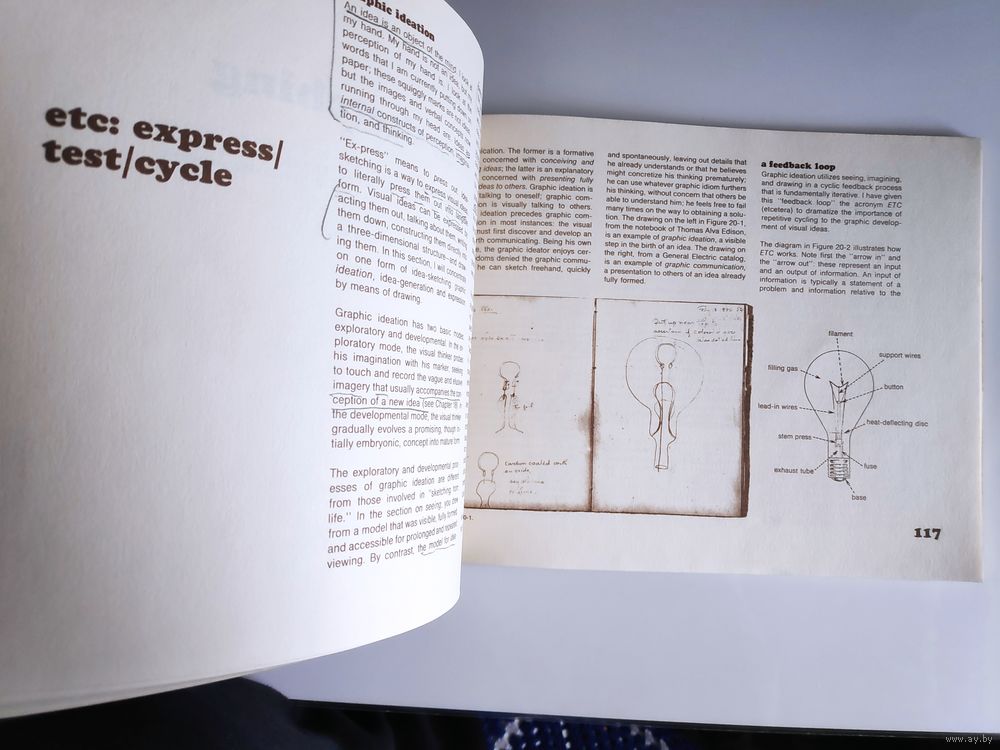 etc: express/
test/cycle
graphic ideation
An idea is an object of the mind. I look at
my hand. My hand is not an idea, but my
perception of my hand is. I look at the
words that I am currently putting down on
paper; these squiggly marks are not ideas,
but the images and verbal concepts now
running through my head are. Ideas are
internal constructs of perception, imagina-
tion, and thinking.
"Ex-press" means to press out. Idea-
sketching is a way to express visual ideas,
to literally press them out into tangible
form. Visual ideas can be expressed by
acting them out, talking about them, writing
them down, constructing them directly into
a three-dimensional structure—and draw-
ing them. In this section, I will concentrate
on one form of idea-sketching: graphic
ideation, idea-generation and expression
by means of drawing.
Graphic ideation has two basic modes:
exploratory and developmental. In the ex-
ploratory mode, the visual thinker probes
his imagination with his marker, seeking
to touch and record the vague and elusive
imagery that usually accompanies the con-
ception of a new idea (see Chapter 18). In
the developmental mode, the visual thinker
gradually evolves a promising, though ini-
tially embryonic, concept into mature form.
The exploratory and developmental proc-
esses of graphic ideation are different
from those involved in "sketching from
life." In the section on seeing, you drew
from a model that was visible, fully formed,
and accessible for prolonged and repeated
viewing. By contrast, the model for idea-
ication. The former is a formative
concerned with conceiving and
ideas; the latter is an explanatory
concerned with presenting fully
ideas to others. Graphic ideation is
talking to oneself; graphic com-
on is visually talking to others.
ideation precedes graphic com-
on in most instances: the visual
must first discover and develop an
rth communicating. Being his own
e, the graphic ideator enjoys cer-
doms denied the graphic commu-
he can sketch freehand, quickly
and spontaneously, leaving out details that
he already understands or that he believes
might concretize his thinking prematurely;
he can use whatever graphic idiom furthers
his thinking, without concern that others be
able to understand him; he feels free to fail
many times on the way to obtaining a solu-
tion. The drawing on the left in Figure 20-1,
from the notebook of Thomas Alva Edison,
is an example of graphic ideation, a visible
step in the birth of an idea. The drawing on
the right, from a General Electric catalog,
is an example of graphic communication,
a presentation to others of an idea already
fully formed.
a feedback loop
Graphic ideation utilizes seeing, imagining,
and drawing in a cyclic feedback process
that is fundamentally iterative. I have given
this "feedback loop" the acronym ETC
(etcetera) to dramatize the importance of
repetitive cycling to the graphic develop-
ment of visual ideas.
The diagram in Figure 20-2 illustrates how
ETC works. Note first the "arrow in" and
the "arrow out": these represent an input
and an output of information. An input of
information is typically a statement of a
problem and information relative to the
Carbon coated with
an oxide
filament
support wires
filling gas
button
lead-in wires
heat-deflecting disc
stem press
exhaust tube
fuse
base
0-1.
117
www.ay.by